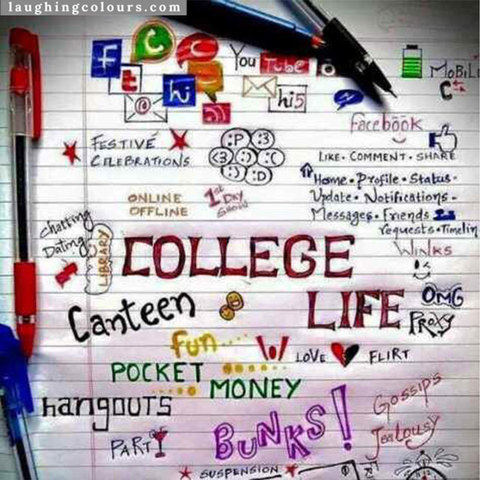 laughingcolours.com
f
t
hi
@
You Tube
hi5
MOBILE
facebook
FESTIVE
CELEBRATIONS
:P :3
<3 :) :(
;) :D
LIKE • COMMENT • SHARE
Home • Profile • Status •
Update • Notifications •
Messages • Friends
requests • Timeline
WINKS
ONLINE
OFFLINE
1st DAY
SHOW
Chatting
Dating
LIBRARY
COLLEGE
LIFE
Canteen
OMG
PROXY
fun...
LOVE
FLIRT
POCKET
MONEY
hangouts
Gossips
Jealousy
PARTY
BUNKS!
SUSPENSION